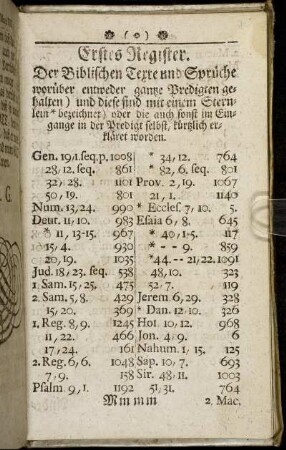 (o)
Erstes Register.
Der Biblischen Texte und Sprüche
worüber entweder gantze Predigten ge-
halten) und diese sind mit einem Stern-
lein * bezeichnet) oder die auch sonst im Ein-
gange in der Predigt selbst, kürtzlich er-
kläret worden.
Gen. 19, 1. seq. p. 1008
28, 12. seq. 861
32, 28. 1101
50, 19. 801
Num. 13, 24. 990
Deut. 11, 10. 983
* 11, 13-15. 967
15, 4. 930
20, 19. 1035
Jud. 18, 23. seq. 538
1. Sam. 15, 25. 475
2. Sam. 5, 8. 429
15, 20. 369
1. Reg. 8, 9. 1245
11, 22. 466
17, 24. 161
2. Reg. 6, 6. 1048
7, 9. 158
Psalm. 9, 1. 1192
* 34, 12. 764
* 82, 6. seq. 801
Prov. 2, 19. 1067
21, 1. 1140
* Eccles. 7, 10. 5.
Esaia 6, 8. 645
* 40, 1-5. 117
* - - 9. 859
* 44. -- 21, 22. 1091
48, 10. 323
52, 7. 119
Jerem 6, 29. 328
* Dan. 12, 10. 326
Hos. 10, 12. 968
Jon. 4, 9. 6
Nahum. 1, 15. 125
Sap. 10, 7. 693
Sir. 48, 11. 1003
51, 31. 764
M m m m 2. Mac.
G.